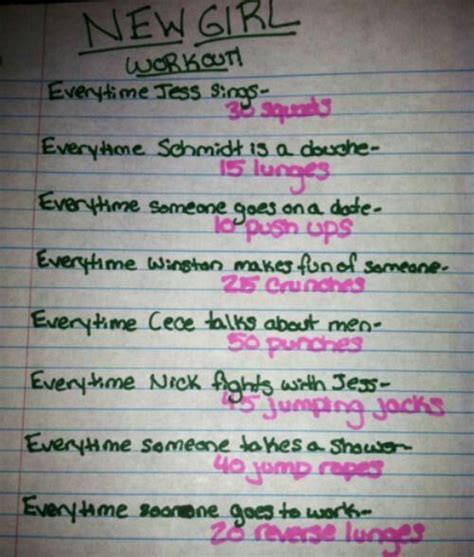 NEW GIRL
WORKOUT!
Everytime Jess Sings-
30 squats
Everytime Schmidt is a douche-
15 lunges
Everytime someone goes on a date-
10 push ups
Everytime Winston makes fun of someone-
25 crunches
Everytime Cece talks about men-
50 punches
Everytime Nick fights with Jess-
45 jumping jacks
Everytime someone takes a shower-
40 jump ropes
Everytime someone goes to work-
20 reverse lunges